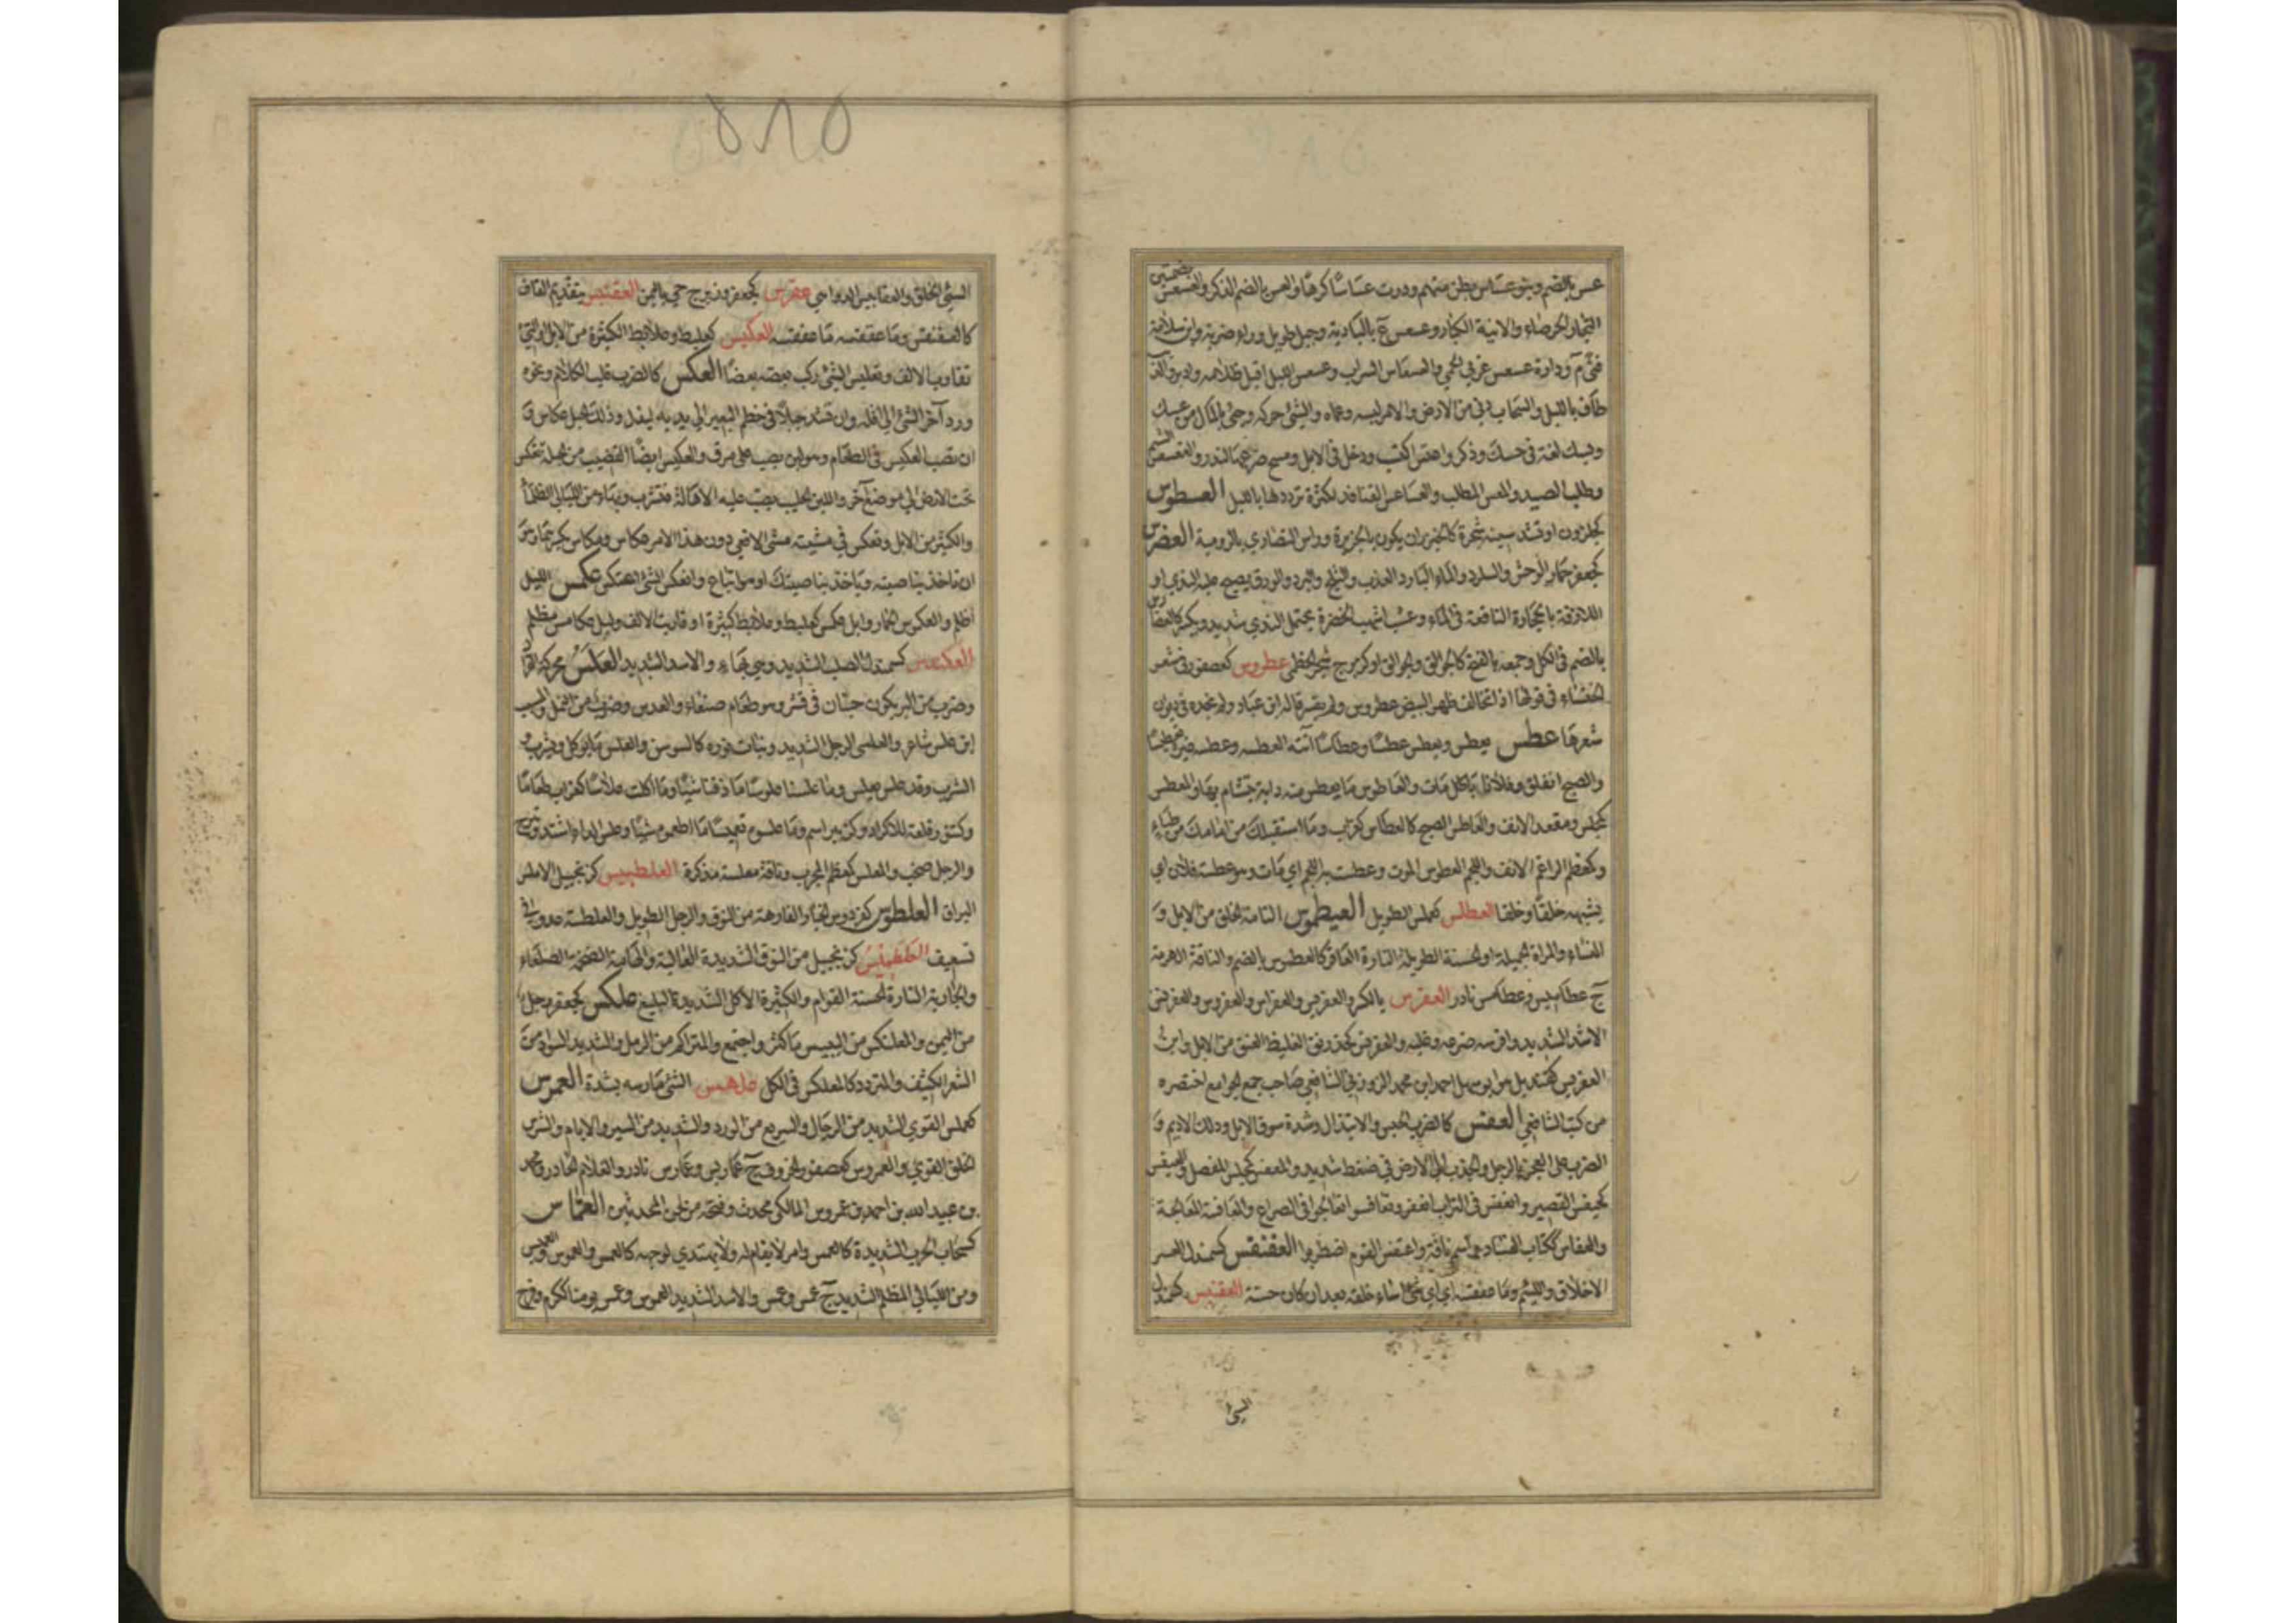 عس بالضم وبنو عساس بطن منهم ودرت عساسا كرها والعس بالضم الذكر والعسس بضمتين
التجار الحرصاء والآنية الكبار وعسعس ع بالبادية وجبل طويل وراء ضرية وابن سلامة
فتى م ودارة عسعس غربي الحمى والعسعاس السراب وعسعس الليل اقبل ظلامه وادبر والذئب
طاف بالليل والسحاب دنى من الارض والامر لبسه وعماه والشئ حركه وجئ بالمال من عسك
وبسك لغة في حسك وذكر واعتس اكتسب ودخل في الابل ومسح ضرعها لتدر والتعسعس الشم
وطلب الصيد والمعس المطلب والعساعس القنافذ لكثرة ترددها بالليل العسطوس
كحلزون او قد تشدد سينه شجرة كالخيزران يكون بالجزيرة وراس النصارى بالرومية العضرس
كجعفر حمار الوحش والماء البارد العذب والثلج والبرد والورق يصبح عليه الندى او
اللازقة بالحجارة الناقعة في الماء وعشب اشهب الخضرة يحتمل الندى شديدا ويكسر كالعضارس
بالضم في الكل وجمعه بالفتح كالجوالق والجوالق او كزبرج شجر الخطمى عطروس كعصفور في شعر
الخنساء في قولها اذا تخالف ظهر البيض عطروس ولم يفسر قاله ابن عباد ولم نجده في ديوان
شعرها عطس يعطس ويعطس عطسا وعطاسا اتته العطسة وعطسه غيره تعطيسا
والصبح انفلق وفلان مات والعاطوس ما يعطس منه دابة يتشاءم بها والمعطس
كمجلس ومقعد الانف والعاطس الصبح كالعطاس كغراب وما استقبلك من امامك من ظباء
وكمعظم الراغم الانف واللجم العطوس الموت وعطست به اللجم اي مات وهو عطسة فلان اي
يشبهه خلقا وخلقا العطلس كعملس الطويل العيطموس التامة الخلق من الابل و
النساء والمراة الجميلة او الحسنة الطويلة التارة العاقر كالعطموس بالضم والناقة الهرمة
ج عطاميس وعطامس نادر العفرس بالكسر والعفريس والعفراس والعفروس والعفرنس
الاسد الشديد وعفرسه صرعه وغلبه والعفرنس الغليظ العنق من الابل وابن
العفريس كقنديل هو ابو سهل احمد ابن محمد الزوزني الشافعي صاحب جمع الجوامع اختصره
من كتب الشافعي العفس كالضرب الحبس والابتذال وشدة سوق الابل ودلك الاديم و
الضرب على العجز بالرجل والجذب الى الارض في ضغط شديد والمعفس كمجلس المفصل والعيفس
كحيفس القصير وانعفس في التراب انعفر وتعافسوا تعالجوا في الصراع والمعافسة المعالجة
والعفاس ككتاب الفساد واسم ناقة واعتفس القوم اضطربوا العفنقس كسمندل العسر
الاخلاق واللئيم وما عفقسه اي اي شئ اساء خلقه بعد ان كان حسنه العقنبس كسمندل
السئ
٥٨٥
السئ الخلق والعقابيس الدواهي عقرس كجعفر وزبرج حي باليمن العقنفس بتقديم القاف
كالعفنقس وما عقفسه ما عفقسه العكبس كعلبط وعلابط الكثيرة من الابل او التي
تقارب الالف وتعكبس الشئ ركب بعضه بعضا العكس كالضرب قلب الكلام ونحوه
ورد آخر الشئ الى اوله وان تشد حبلا في خطم البعير الى يديه ليذل وذلك الحبل عكاس و
ان تصب العكيس في الطعام وهو لبن يصب على مرق والعكيس ايضا القضيب من الحبلة تعكس
تحت الارض الى موضع آخر واللبن الحليب يصب عليه الاهالة فيشرب وبهاء من الليالي الظلماء
والكثير من الابل وتعكس في مشيته مشى الافعى ودون هذا الامر عكاس ومكاس بكسرهما وهو
ان تاخذ بناصيته وياخذ بناصيتك او هو اتباع وانعكس الشئ اعتكس عكمس الليل
اظلم والعكموس الحمار وابل عكمس كعلبط وعلابط كثيرة او قاربت الالف وليل عكامس مظلم
العكندس كسمندل الصلب الشديد وهي بهاء والاسد الشديد العلس محركة القراد
وضرب من البر يكون حبتان في قشر وهو طعام صنعاء والعدس وضرب من النمل والمسيب
ابن علس شاعر والعلسي الرجل الشديد ونبات نوره كالسوسن والعلس ما يوكل ويشرب و
الشرب وقد علس يعلس وما علسنا علوسا ما ذقنا شيئا وما اكلت علاسا كغراب طعاما
وكتنور قلعة للاكراد وكزبير اسم وما علسوه تعليسا ما اطعموه شيئا وعلس الداء اشتد وبرح
والرجل صخب والمعلس كمعظم المجرب وناقة معلسة مذكرة العلطبيس كزنجبيل الاملس
البراق العلطوس كفردوس الخيار الفارهة من النوق والرجل الطويل والعلطسة عدو في
تعسف العلطميس كزنجبيل من النوق الشديدة الغالية والهامة الضخمة الصلعاء
والجارية التارة الحسنة القوام والكثيرة الاكل الشديدة البلع علكس كجعفر رجل
من اليمن والمعلنكس من اليبيس ما كثر واجتمع والمتراكم من الرمل والشديد السواد من
الشعر الكثيف والمتردد كالمعلكس في الكل علهس الشئ مارسه بشدة العمرس
كعملس القوي الشديد من الرجال والسريع من الورد والشديد من السير والايام والشرس
الخلق القوي والعمروس كعصفور الخروف ج عماريس وعمارس نادر والغلام الحادر ومحمد
بن عبيد الله بن احمد بن عمروس المالكي محدث وفتحه من لحن المحدثين العماس
كسحاب الحرب الشديدة كالعمس وامر لا يقام له ولا يهتدى لوجهه كالعمس والعموس والعميس
ومن الليالي المظلم الشديد ج عمس وعمس والاسد الشديد العموس وعمس يومنا ككرم وفرح